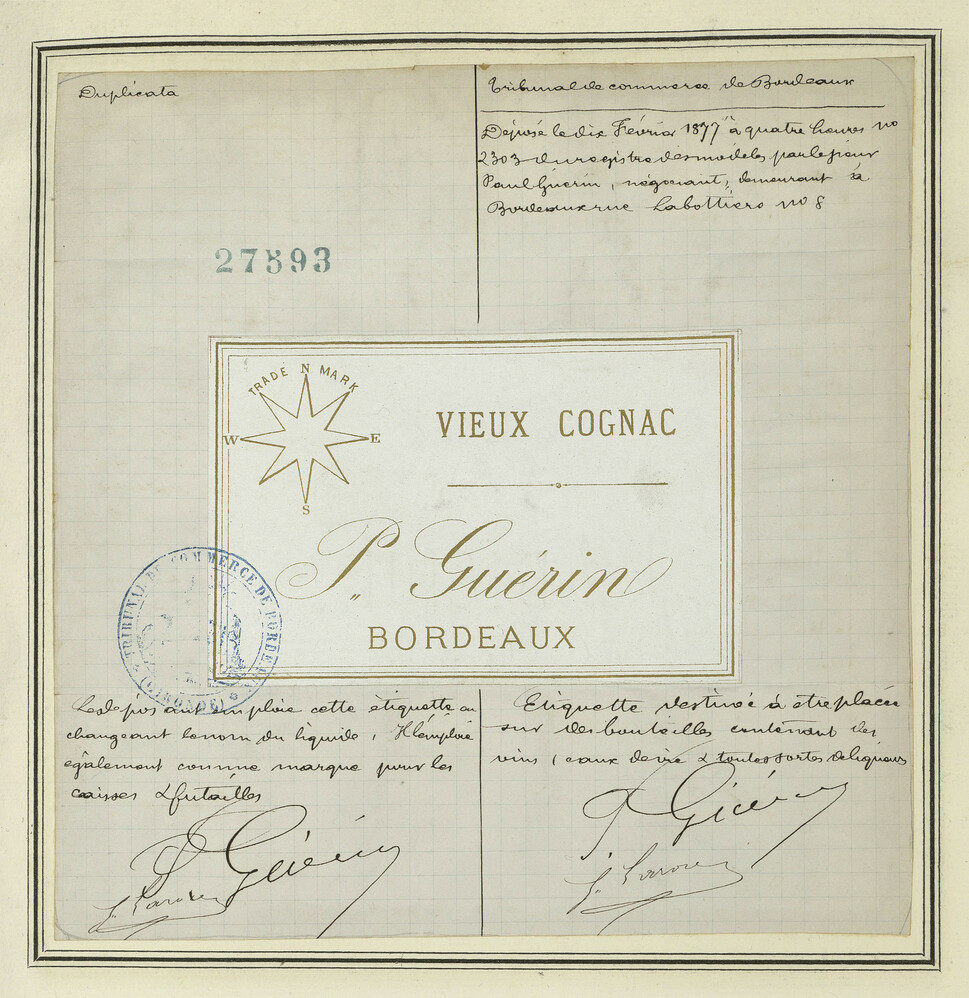 Duplicata
Tribunal de commerce de Bordeaux
Déposé le dix Février 1877 à quatre heures no
2303 du registre des modèles par le sieur
Paul Guérin, négociant, demeurant à
Bordeaux rue Labottière no 8
27593
TRADE N MARK
W E
S
VIEUX COGNAC
P. Guérin
BORDEAUX
TRIBUNAL DE COMMERCE DE BORDEAUX
(GIRONDE)
Le déposant emploie cette étiquette en
changeant le nom du liquide, Il l'emploie
également comme marque pour les
caisses & futailles
P Guérin
Etiquette destinée à etre placée
sur des bouteilles contenant des
vins, eaux de vie & toutes sortes de liqueurs
P Guérin